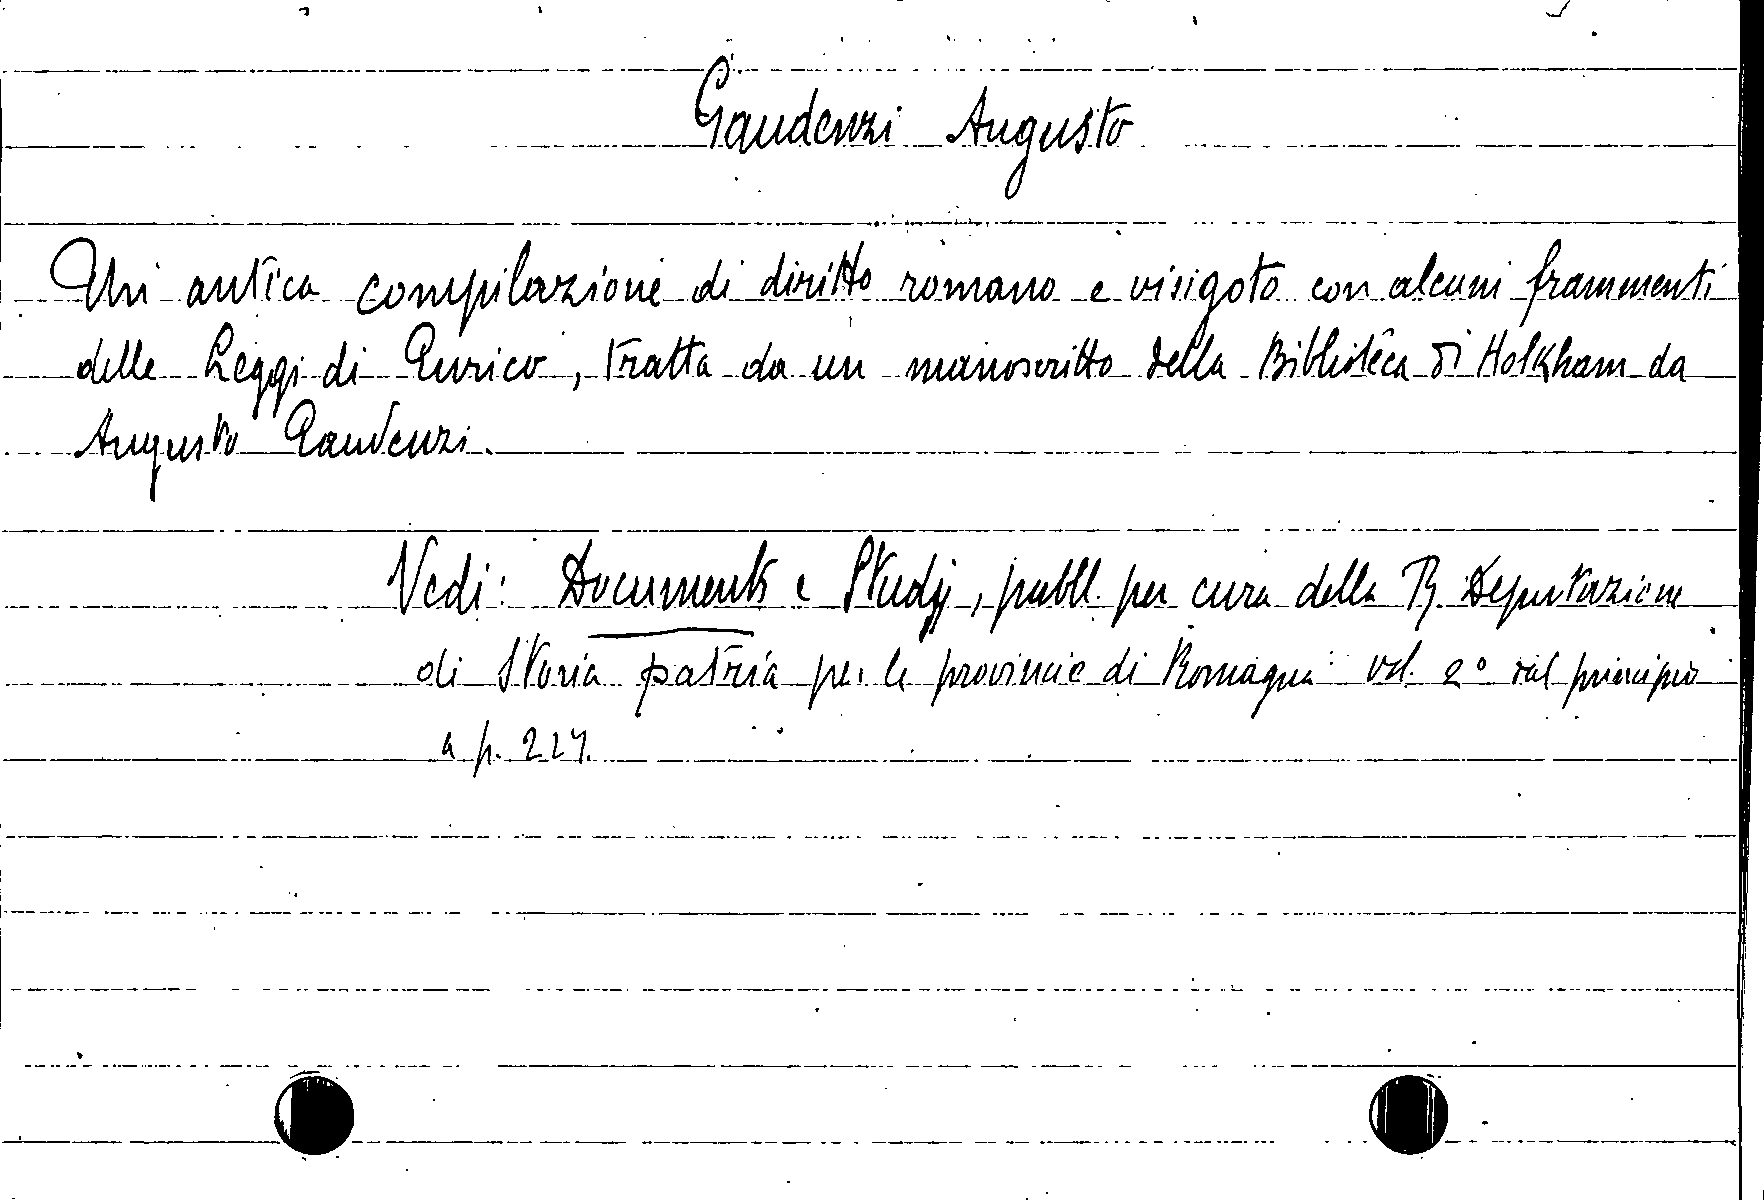 Gaudenzi Augusto
Un'antica compilazione di diritto romano e visigoto con alcuni frammenti
delle Leggi di Eurico, tratta da un manoscritto della Biblioteca di Holkham da
Augusto Gaudenzi.
Vedi: Documenti e Studj, pubbl. per cura della R. Deputazione
di Storia patria per le provincie di Romagna vol. 2° dal principio
a p. 227.